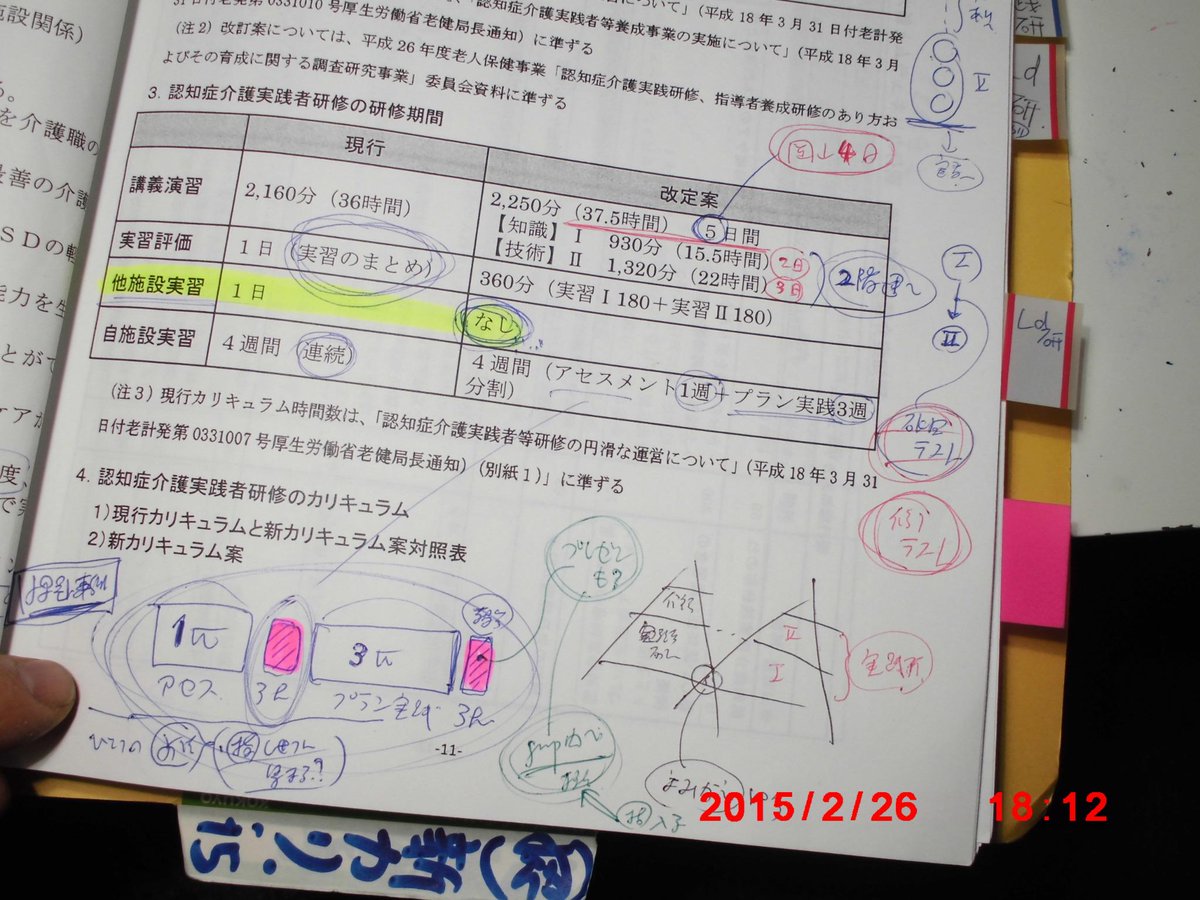 施設関係)
る。
を介護職の
最善の介護
ＳＤの軽
能力を生
とがで
ケアが
度、
で実
31日付老計発第0331010号厚生労働省老健局長通知)に準ずる
「認知症介護実践者等養成事業の実施について」(平成18年3月31日付老計発
(注2)改訂案については、平成26年度老人保健事業「認知症介護実践研修、指導者養成研修のあり方お
よびその育成に関する調査研究事業」委員会資料に準ずる
3. 認知症介護実践者研修の研修期間
現行
改定案
講義演習
2,160分 (36時間)
2,250分 (37.5時間) 5日間
【知識】Ⅰ 930分 (15.5時間)
【技術】Ⅱ 1,320分 (22時間)
実習評価
1日 (実習のまとめ)
360分 (実習Ⅰ180＋実習Ⅱ180)
他施設実習
1日
なし
自施設実習
4週間 (連続)
4週間 (アセスメント1週＋プラン実践3週
分割)
岡山4日
2日
3日
2階建へ
(注3)現行カリキュラム時間数は、「認知症介護実践者等研修の円滑な運営について」(平成18年3月31
日付老計発第0331007号厚生労働省老健局長通知)(別紙1)」に準ずる
4. 認知症介護実践者研修のカリキュラム
1)現行カリキュラムと新カリキュラム案対照表
2)新カリキュラム案
Ⅰ
Ⅱ
Ⅱ
Ld
研
Ld
研
テスト
テスト
プレゼン
も?
1W
3W
アセス
3h
プラン実践
3h
ひとつの
指
Ⅱ
Ⅰ
実践研
-11-
KOKUYO
新カリ.15
2015/2/26 18:12